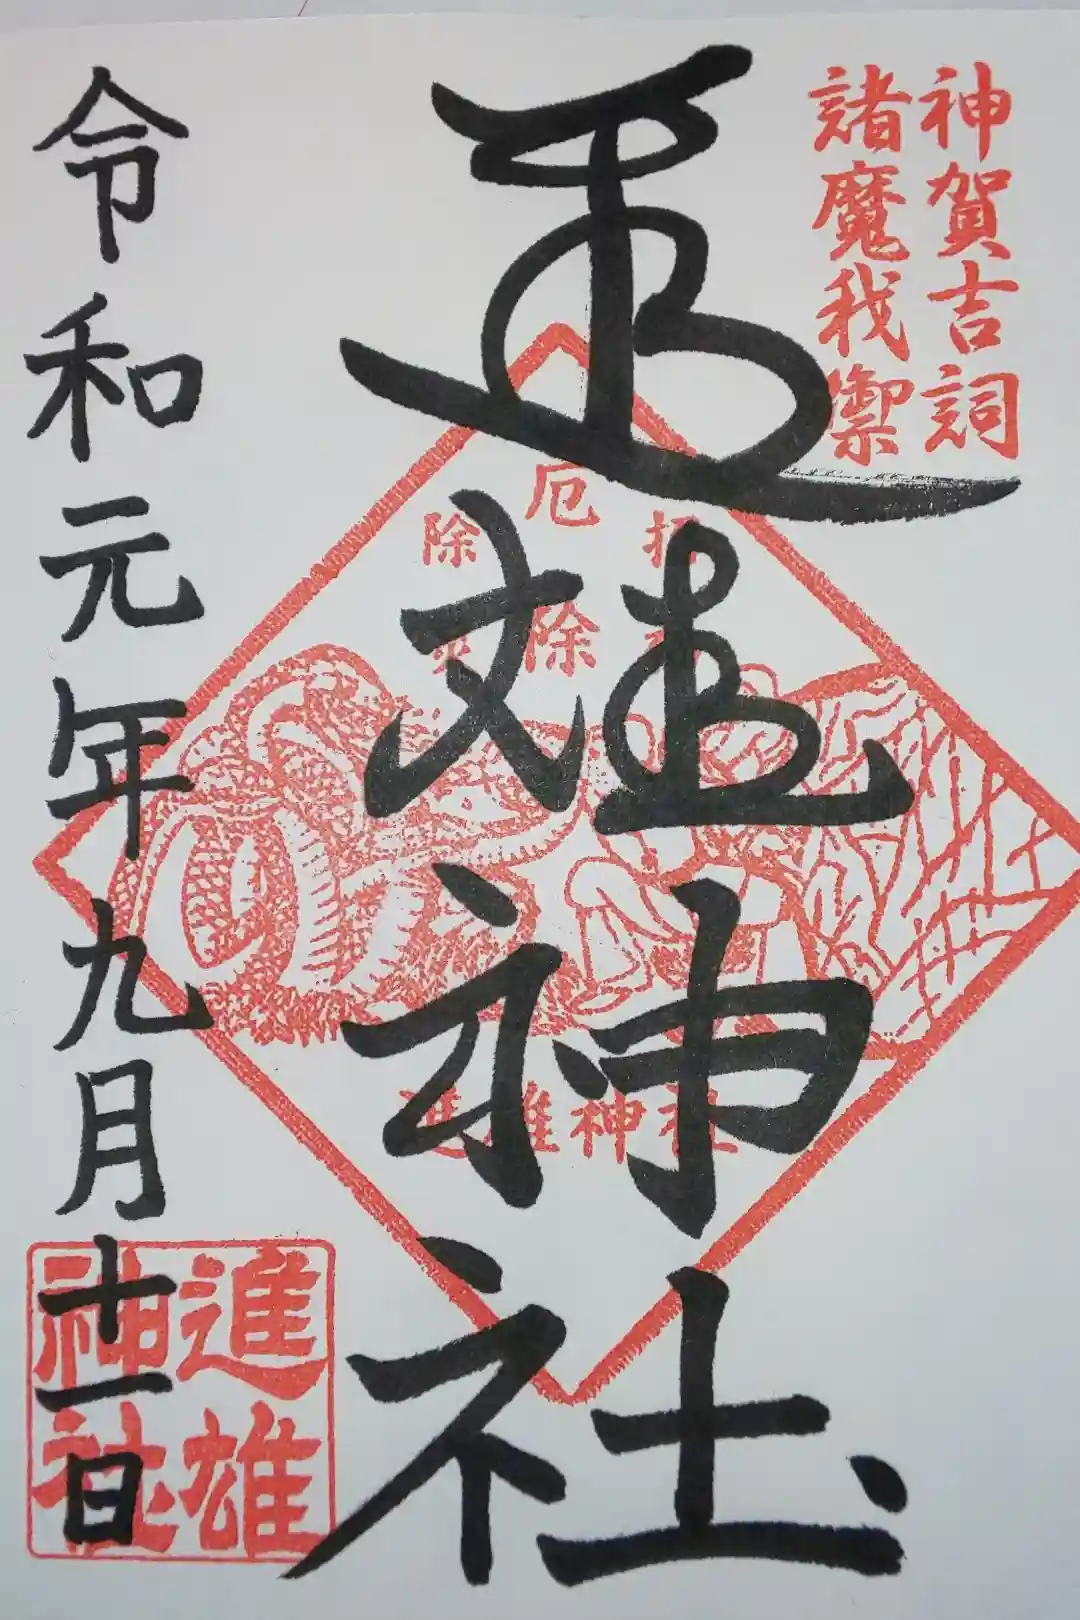 神賀吉詞
諸魔我禦
進雄神社
厄除
除災
招福
進雄神社
令和元年九月十一日
進雄
神社